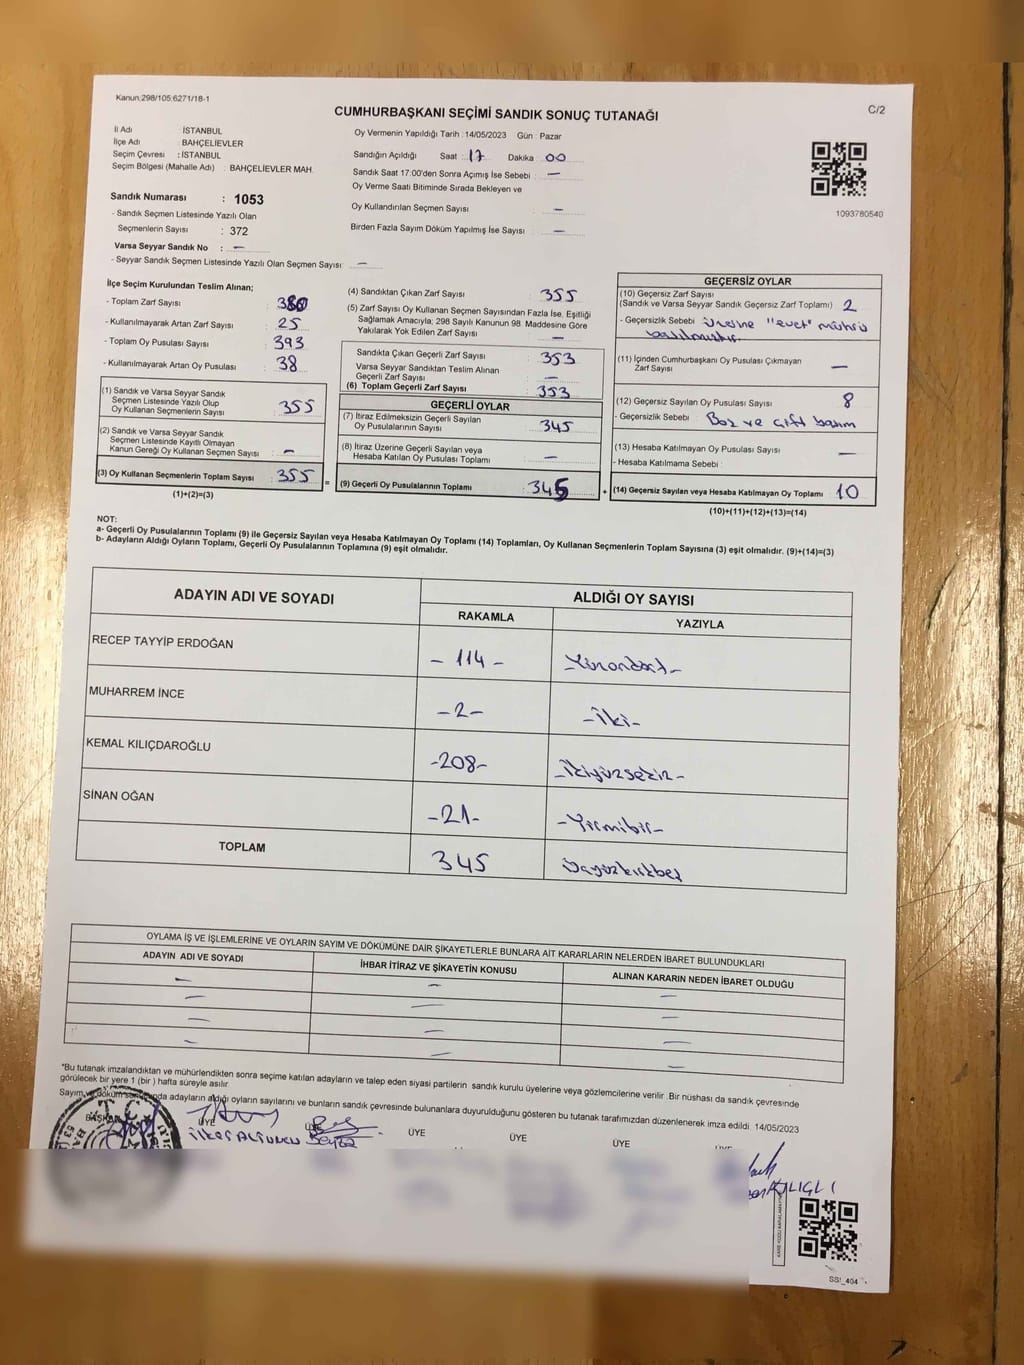 Kanun:298/105;6271/18-1
C/2
CUMHURBAŞKANI SEÇİMİ SANDIK SONUÇ TUTANAĞI
İl Adı : İSTANBUL
İlçe Adı : BAHÇELİEVLER
Seçim Çevresi : İSTANBUL
Seçim Bölgesi (Mahalle Adı) : BAHÇELİEVLER MAH.
Sandık Numarası : 1053
- Sandık Seçmen Listesinde Yazılı Olan
Seçmenlerin Sayısı : 372
Varsa Seyyar Sandık No : –
- Seyyar Sandık Seçmen Listesinde Yazılı Olan Seçmen Sayısı: –
Oy Vermenin Yapıldığı Tarih : 14/05/2023 Gün : Pazar
Sandığın Açıldığı Saat : 17 Dakika 00
Sandık Saat 17:00'den Sonra Açımış İse Sebebi : –
Oy Verme Saati Bitiminde Sırada Bekleyen ve
Oy Kullandırılan Seçmen Sayısı : –
Birden Fazla Sayım Döküm Yapılmış İse Sayısı : –
1093780540
İlçe Seçim Kurulundan Teslim Alınan;
- Toplam Zarf Sayısı : 380
- Kullanılmayarak Artan Zarf Sayısı : 25
- Toplam Oy Pusulası Sayısı : 393
- Kullanılmayarak Artan Oy Pusulası : 38
(1) Sandık ve Varsa Seyyar Sandık
Seçmen Listesinde Yazılı Olup
Oy Kullanan Seçmenlerin Sayısı : 355
(2) Sandık ve Varsa Seyyar Sandık
Seçmen Listesinde Kayıtlı Olmayan
Kanun Gereği Oy Kullanan Seçmen Sayısı : –
(3) Oy Kullanan Seçmenlerin Toplam Sayısı : 355
(1)+(2)=(3)
(4) Sandıktan Çıkan Zarf Sayısı : 355
(5) Zarf Sayısı Oy Kullanan Seçmen Sayısından Fazla İse, Eşitliği
Sağlamak Amacıyla; 298 Sayılı Kanunun 98. Maddesine Göre
Yakılarak Yok Edilen Zarf Sayısı : –
Sandıkta Çıkan Geçerli Zarf Sayısı : 353
Varsa Seyyar Sandıktan Teslim Alınan
Geçerli Zarf Sayısı : –
(6) Toplam Geçerli Zarf Sayısı : 353
GEÇERLİ OYLAR
(7) İtiraz Edilmeksizin Geçerli Sayılan
Oy Pusulalarının Sayısı : 345
(8) İtiraz Üzerine Geçerli Sayılan veya
Hesaba Katılan Oy Pusulası Toplamı : –
= (9) Geçerli Oy Pusulalarının Toplamı : 345
GEÇERSİZ OYLAR
(10) Geçersiz Zarf Sayısı
(Sandık ve Varsa Seyyar Sandık Geçersiz Zarf Toplamı) : 2
- Geçersizlik Sebebi : üzerine "evet" mührü
basılmıştır.
(11) İçinden Cumhurbaşkanı Oy Pusulası Çıkmayan
Zarf Sayısı : –
(12) Geçersiz Sayılan Oy Pusulası Sayısı : 8
- Geçersizlik Sebebi : Boş ve çift basım
(13) Hesaba Katılmayan Oy Pusulası Sayısı : –
- Hesaba Katılmama Sebebi :
+ (14) Geçersiz Sayılan veya Hesaba Katılmayan Oy Toplamı : 10
(10)+(11)+(12)+(13)=(14)
NOT:
a- Geçerli Oy Pusulalarının Toplamı (9) ile Geçersiz Sayılan veya Hesaba Katılmayan Oy Toplamı (14) Toplamları, Oy Kullanan Seçmenlerin Toplam Sayısına (3) eşit olmalıdır. (9)+(14)=(3)
b- Adayların Aldığı Oyların Toplamı, Geçerli Oy Pusulalarının Toplamına (9) eşit olmalıdır.
ADAYIN ADI VE SOYADI
ALDIĞI OY SAYISI
RAKAMLA YAZIYLA
RECEP TAYYİP ERDOĞAN – 114 – –Yüzondört–
MUHARREM İNCE –2– –iki–
KEMAL KILIÇDAROĞLU –208– –İkiyüzsekiz–
SİNAN OĞAN –21– –Yirmibir–
TOPLAM 345 Üçyüzkırkbeş
OYLAMA İŞ VE İŞLEMLERİNE VE OYLARIN SAYIM VE DÖKÜMÜNE DAİR ŞİKAYETLERLE BUNLARA AİT KARARLARIN NELERDEN İBARET BULUNDUKLARI
ADAYIN ADI VE SOYADI İHBAR İTİRAZ VE ŞİKAYETİN KONUSU ALINAN KARARIN NEDEN İBARET OLDUĞU
– – –
– – –
– – –
– – –
*Bu tutanak imzalandıktan ve mühürlendikten sonra seçime katılan adayların ve talep eden siyasi partilerin sandık kurulu üyelerine veya gözlemcilerine verilir. Bir nüshası da sandık çevresinde
görülecek bir yere 1 (bir ) hafta süreyle asılır.
Sayım ve döküm sonunda adayların aldığı oyların sayılarını ve bunların sandık çevresinde bulunanlara duyurulduğunu gösteren bu tutanak tarafımızdan düzenlenerek imza edildi. 14/05/2023
BAŞKAN ÜYE ÜYE ÜYE ÜYE ÜYE ÜYE
T.C.
SS!_404